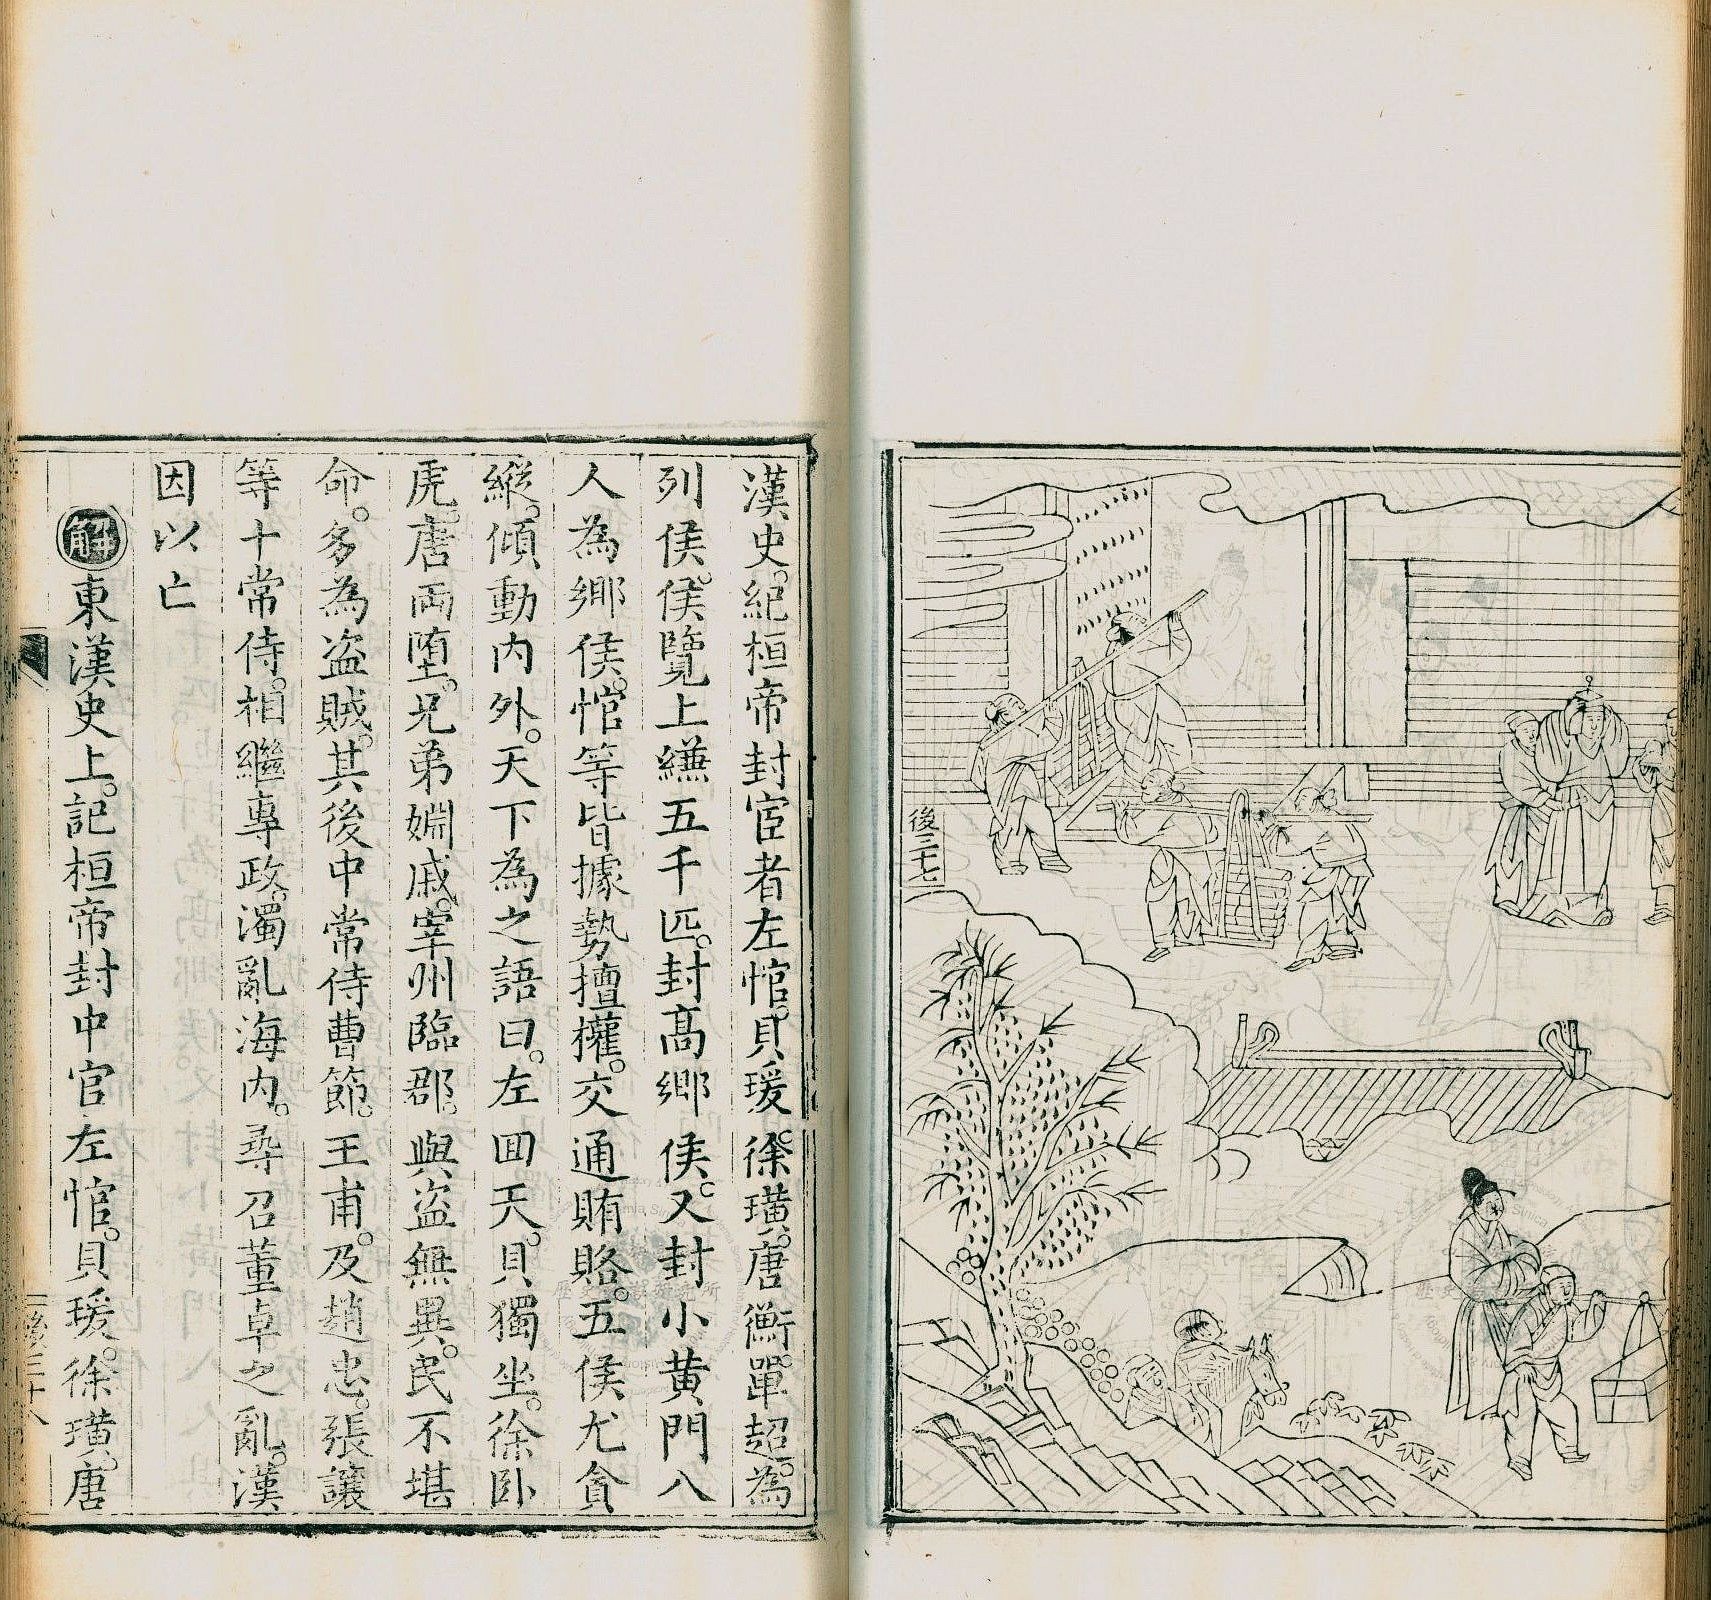 後三十七
漢史。紀桓帝封宦者左悺。貝瑗。徐璜。唐衡。單超。為
列侯。侯覽上縑五千匹。封高鄉侯。又封小黄門八
人為鄉侯。悺等皆據勢擅權。交通賄賂。五侯尤貪
縱。傾動内外。天下為之語曰。左囬天。貝獨坐。徐卧
虎。唐兩墮。兄弟姻戚。宰州臨郡。與盜無異。民不堪
命。多為盗賊。其後中常侍曹節。王甫。及趙忠。張讓
等十常侍。相繼專政。濁亂海内。尋召董卓之亂。漢
因以亡
解 東漢史上。記桓帝封中官左悺。貝瑗。徐璜。唐
後三十八